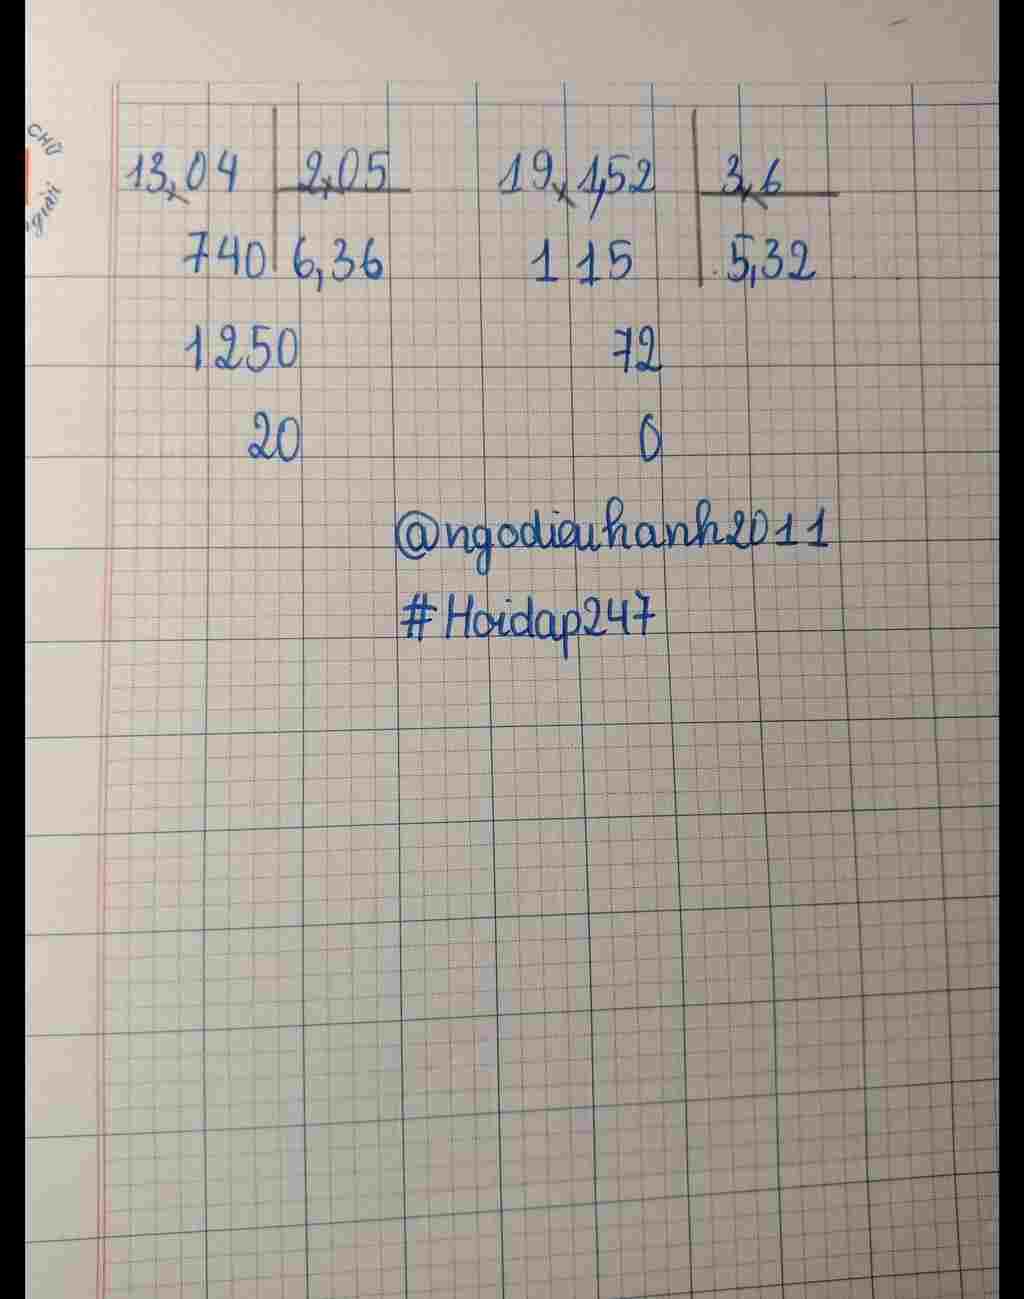 CHỮ
giải
13,04 2,05 19,1,52 3,6
740 6,36 115 5,32
1250 72
20 0
@ngodieuhanh2011
#Hoidap247